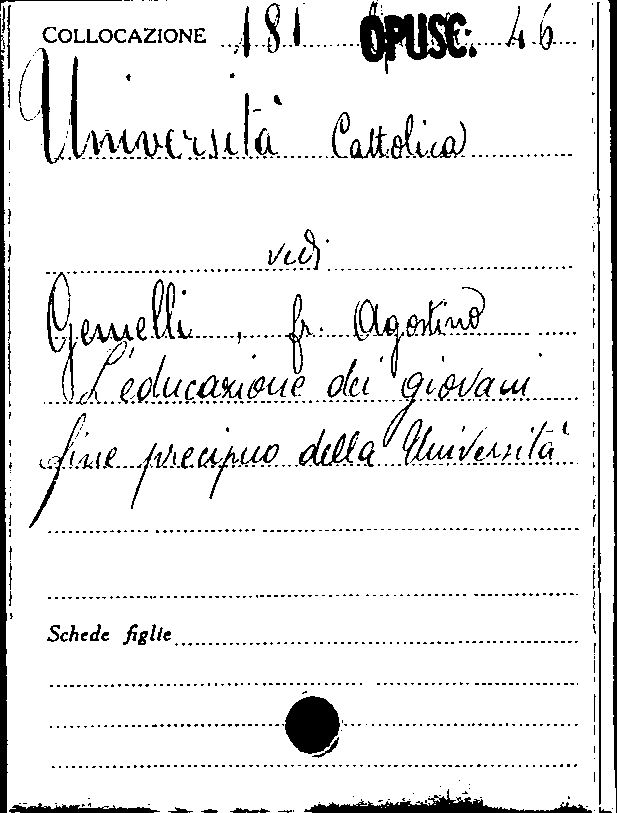 COLLOCAZIONE 181 OPUSC. 46
Università Cattolica
vedi
Gemelli, fr. Agostino
L'educazione dei giovani
fine precipuo della Università
Schede figlie